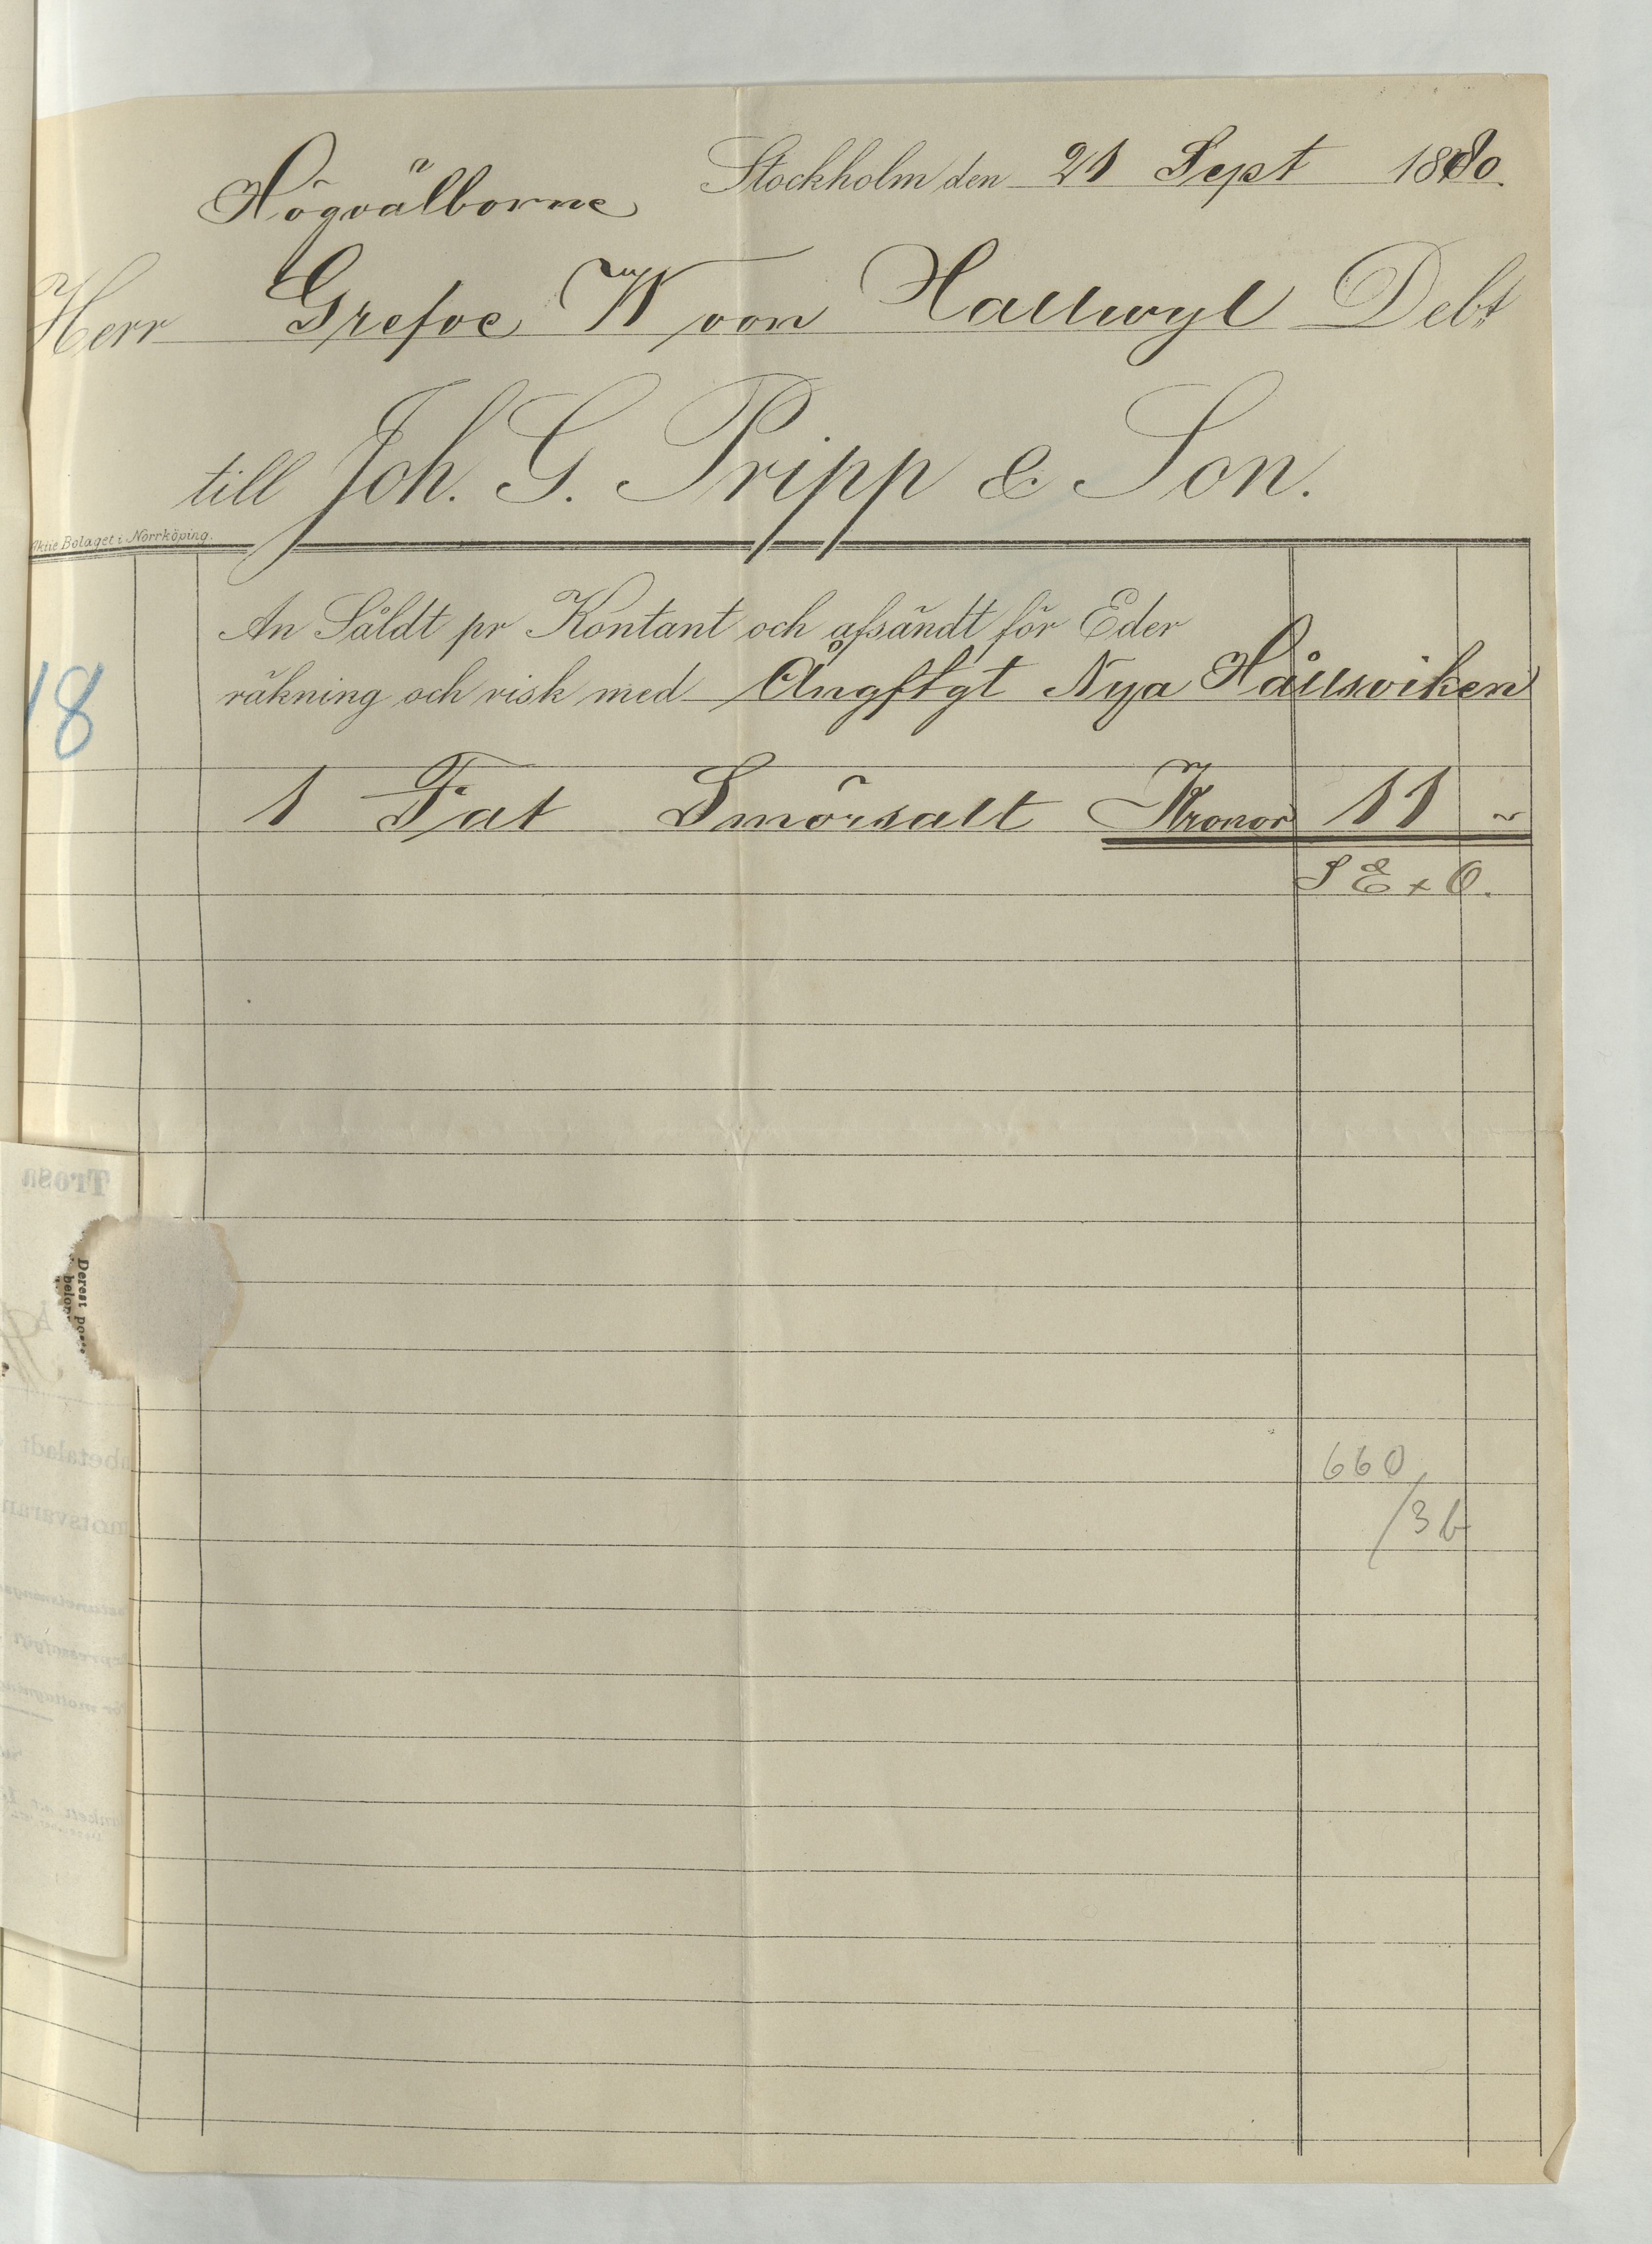 Stockholm den 21 Sept 1880.
Högvälborne
Herr Grefve W von Hallwyl Debt
till Joh. G. Pripp & Son.
Aktie Bolaget i Norrköping.
An Såldt pr Kontant och afsändt för Eder
räkning och risk med Ångftgt Nya Hållsviken
18
1 Fat Smörsalt Kronor 11 ~
S E & O.
Trosa
Derest
660
/36